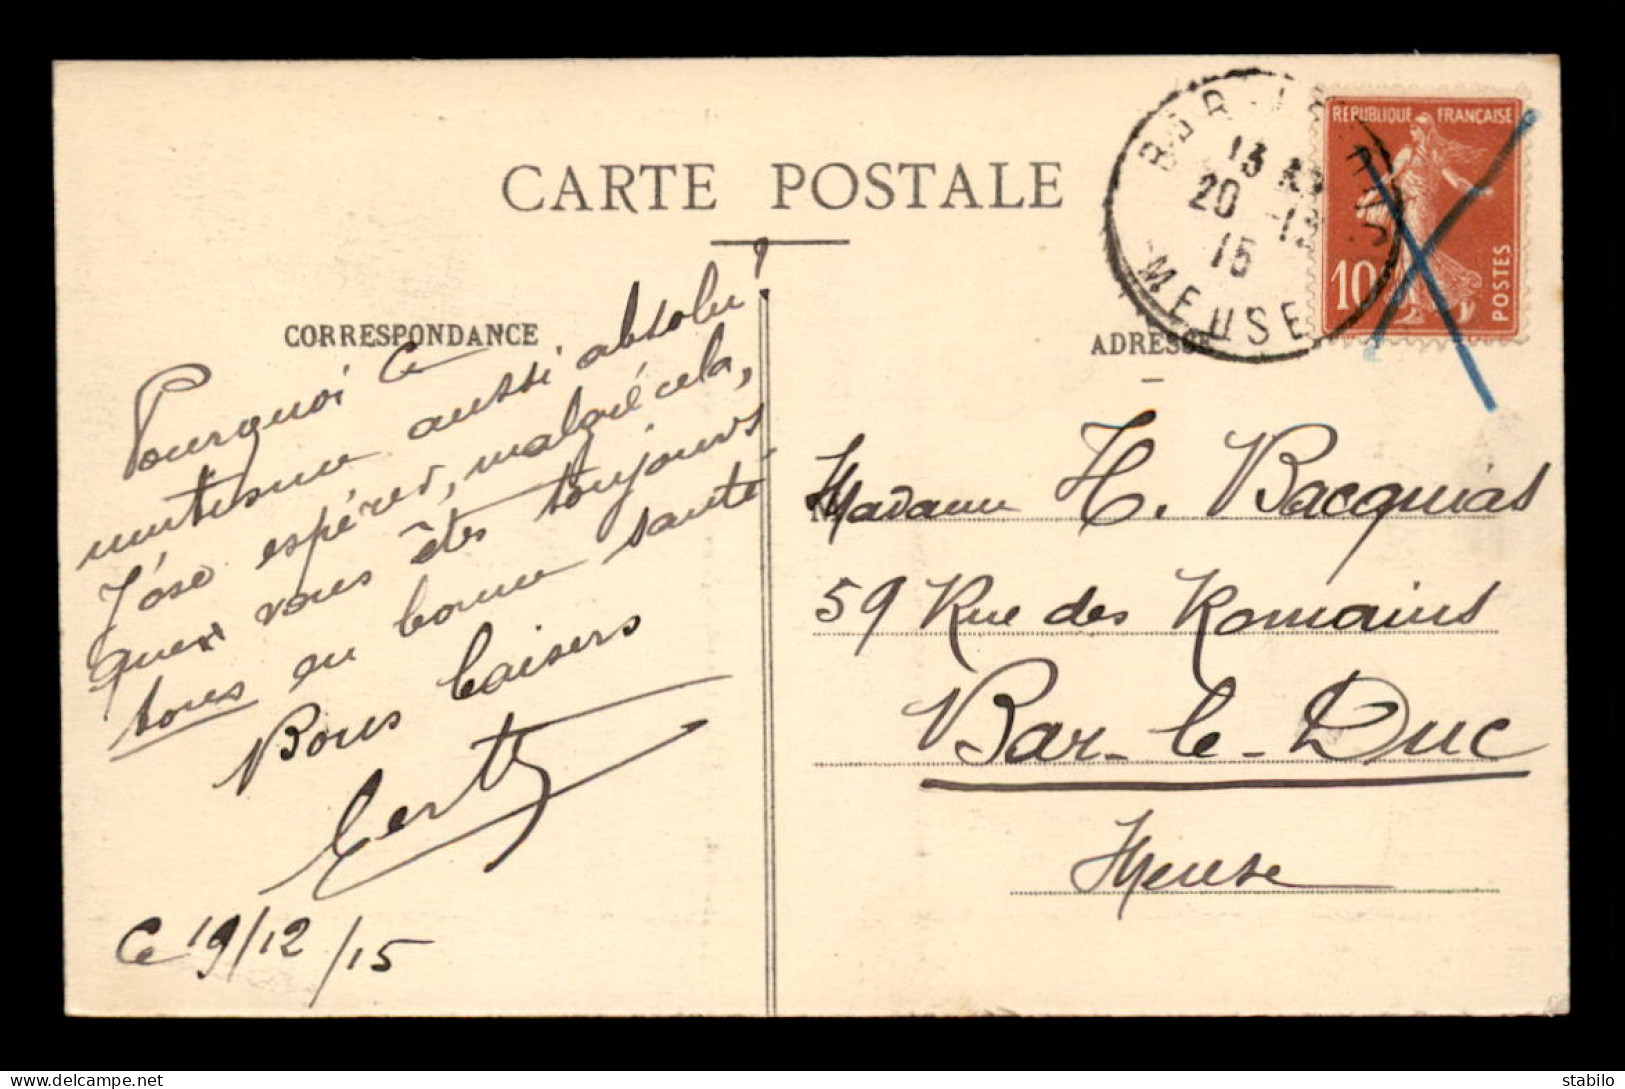 CARTE POSTALE
CORRESPONDANCE
Pourquoi ce
mutisme aussi absolu !
J'ose espérer, malgré cela,
que vous êtes toujours
tous en bonne santé
Bons baisers
Ce 19/12/15
RÉPUBLIQUE FRANÇAISE
10
POSTES
BAR-LE-DUC
13
20 -12
15
MEUSE
ADRESSE
Madame H. Bacquias
59 Rue des Romains
Bar-le-Duc
Meuse
delcampe.net
stabilo